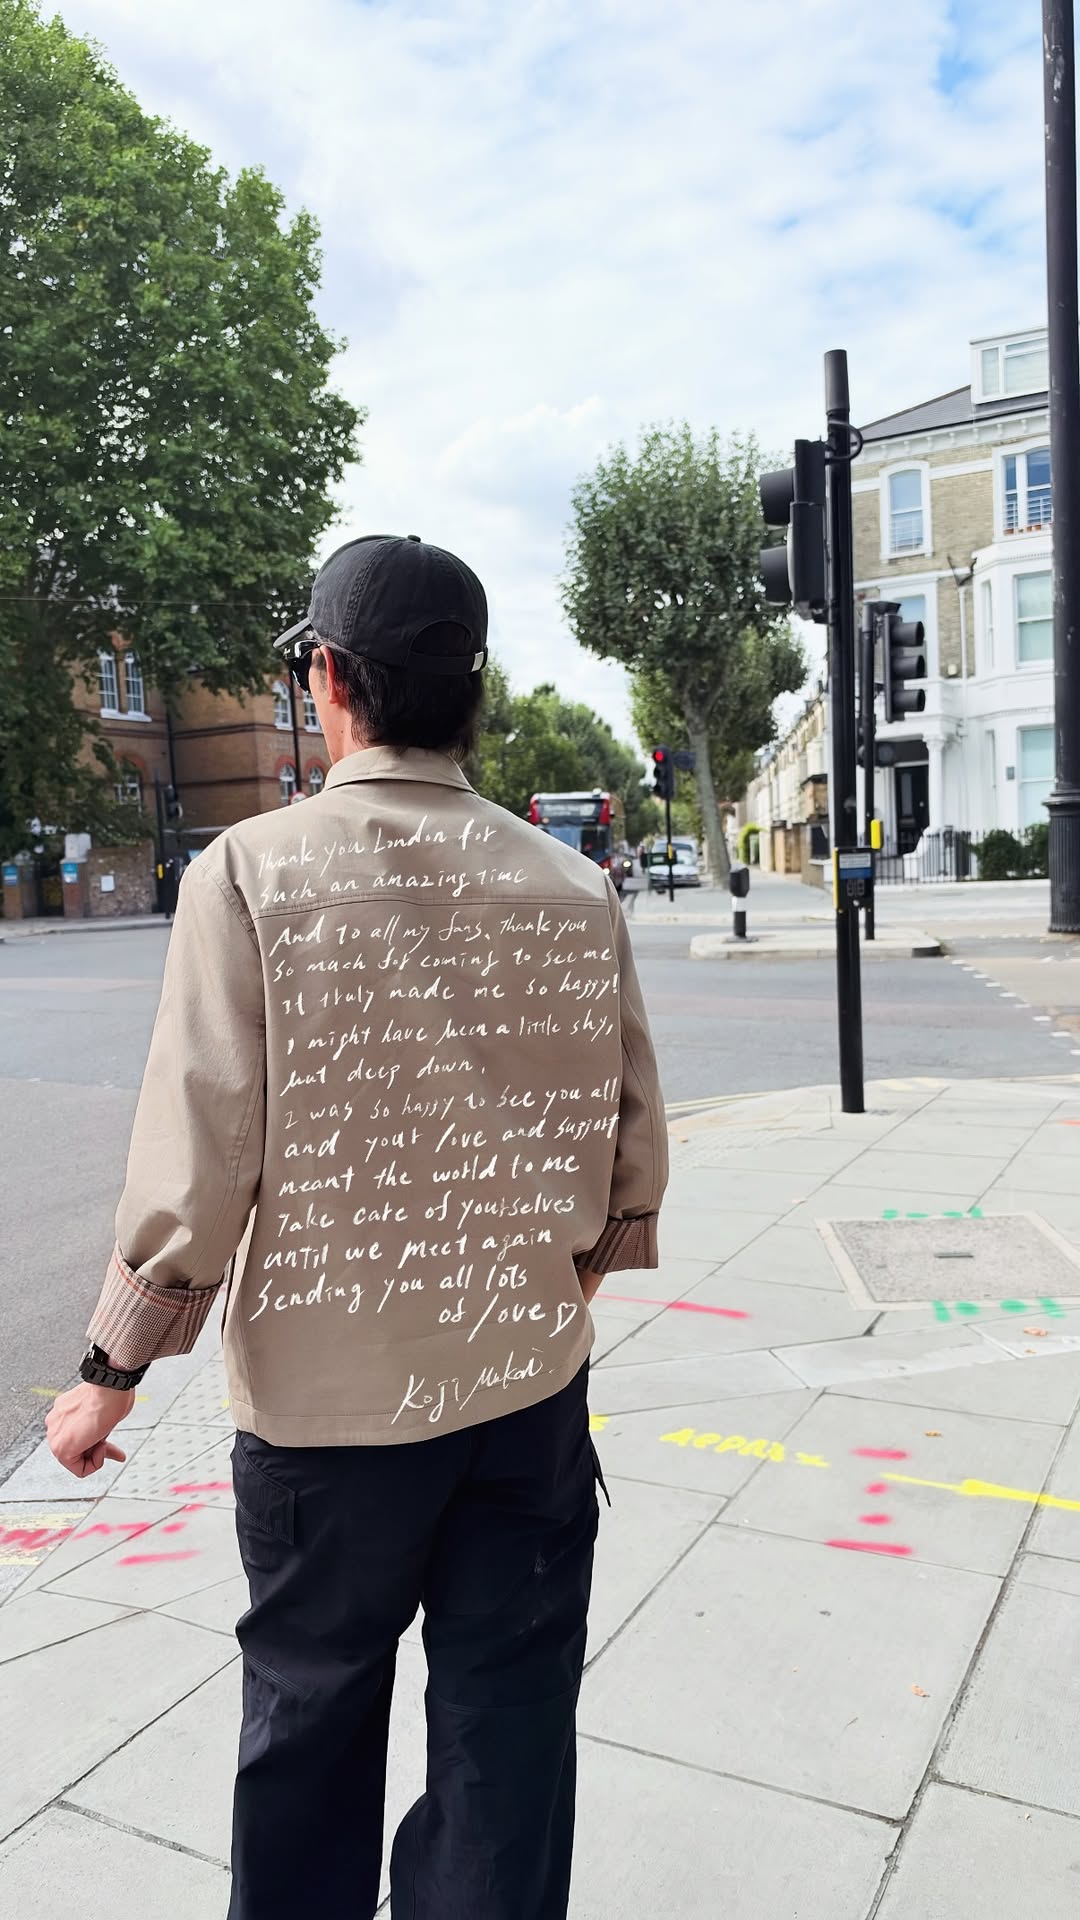 Thank you London for
such an amazing time
And to all my fans, thank you
so much for coming to see me
It truly made me so happy!
I might have been a little shy,
but deep down,
I was so happy to see you all.
and your love and support
meant the world to me
Take care of yourselves
until we meet again
Sending you all lots
of love♡
Koji Mukai.